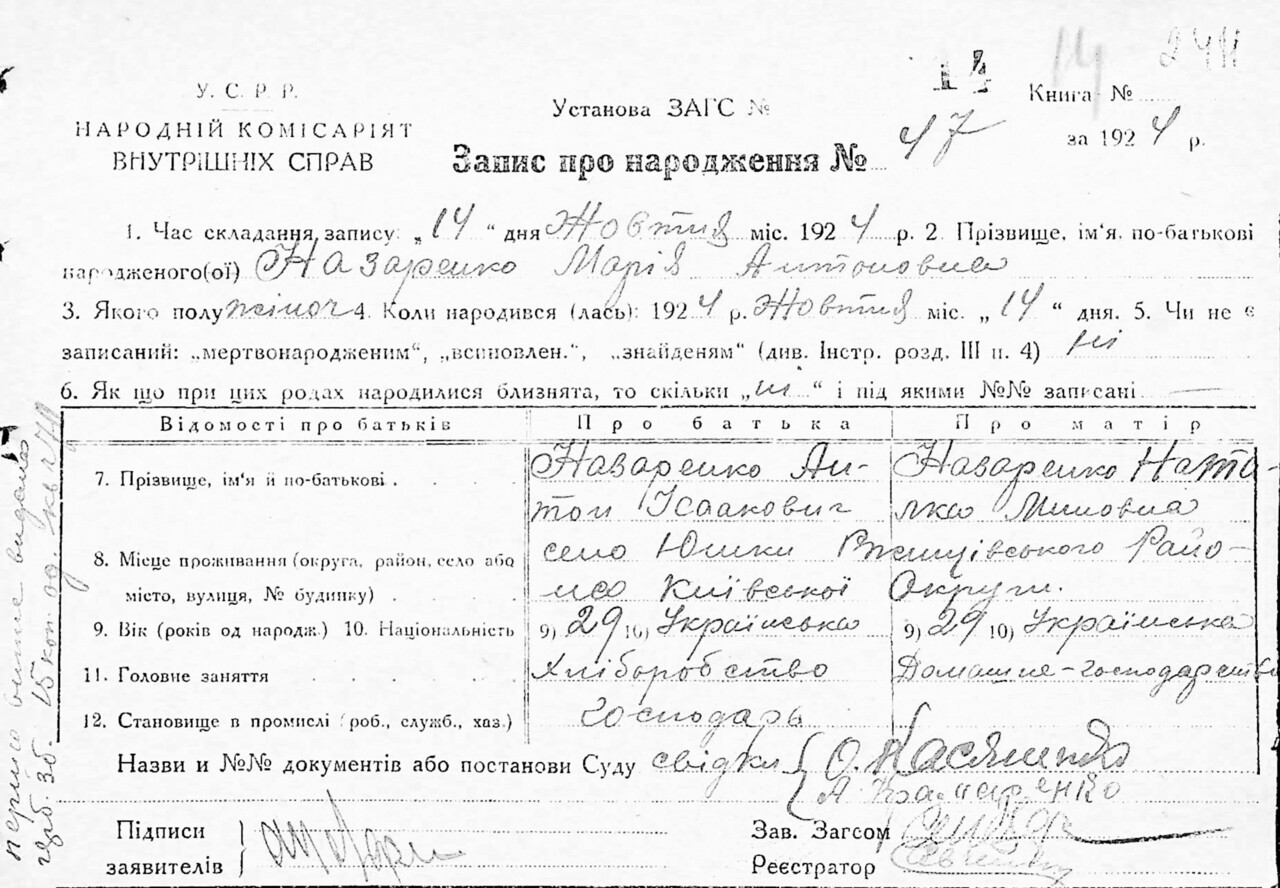 14 2411
У. С. Р. Р.
НАРОДНІЙ КОМІСАРІЯТ
ВНУТРІШНІХ СПРАВ
Установа ЗАГС №
Запис про народження № 47
Книга №
за 1924 р.
1. Час складання запису: „14“ дня Жовтня міс. 1924 р. 2. Прізвище, ім'я, по-батькові
народженого(ої) Назаренко Марія Антоновна
3. Якого полу жіноч 4. Коли народився (лась): 1924 р. Жовтня міс. „14“ дня. 5. Чи не є
записаний: „мертвонародженим“, „всиновлен.“, „знайденям“ (див. Інстр. розд. III п. 4) ні
6. Як що при цих родах народилися близнята, то скільки „ні“ і під якими №№ записані —
Відомості про батьків Про батька Про матір
7. Прізвище, ім'я й по-батькові Назаренко Ан- Назаренко Ната-
тон Ісаакович лка Миновна
8. Місце проживання (округа, район, село або село Юшки Ржищівського Райо-
місто, вулиця, № будинку) Київської Округи.
9. Вік (років од народж.) 10. Національність 9) 29 10) Українська 9) 29 10) Українська
11. Головне заняття Хліборобство Домашнє-господарство
12. Становище в промислі (роб., служб., хаз.) господарь
Назви и №№ документів або постанови Суду свідки О. Касяненко
А.
Підписи
заявителів
Зав. Загсом
Реєстратор
15 коп.